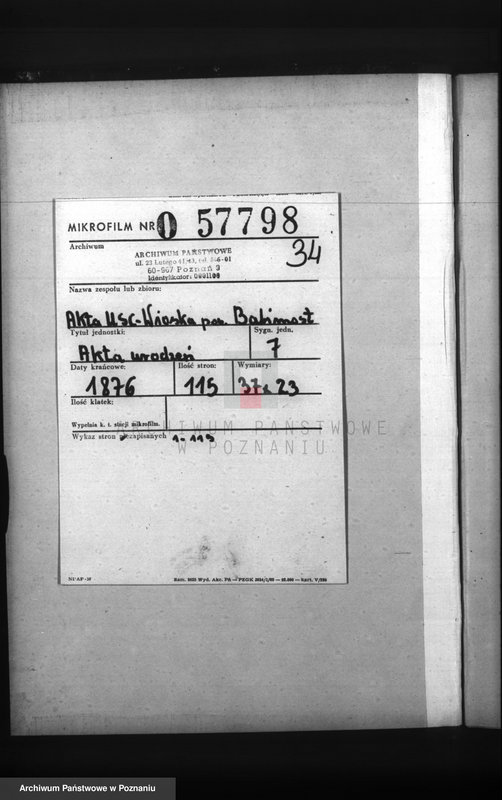 MIKROFILM NR 0 57798
34
Archiwum
ARCHIWUM PAŃSTWOWE
ul. 23 Lutego 41/43,
60-967 Poznań 3
Nazwa zespołu lub zbioru:
Akta USC-Wioska pow. Babimost
Tytuł jednostki:
Sygn. jedn.
Akta urodzeń
7
Daty krańcowe:
Ilość stron:
Wymiary:
1876
115
37x23
Ilość klatek:
Wypełnia k. t. stacji mikrofilm.
ARCHIWUM PAŃSTWOWE
W POZNANIU
Wykaz stron niezapisanych 1-115
Archiwum Państwowe w Poznaniu